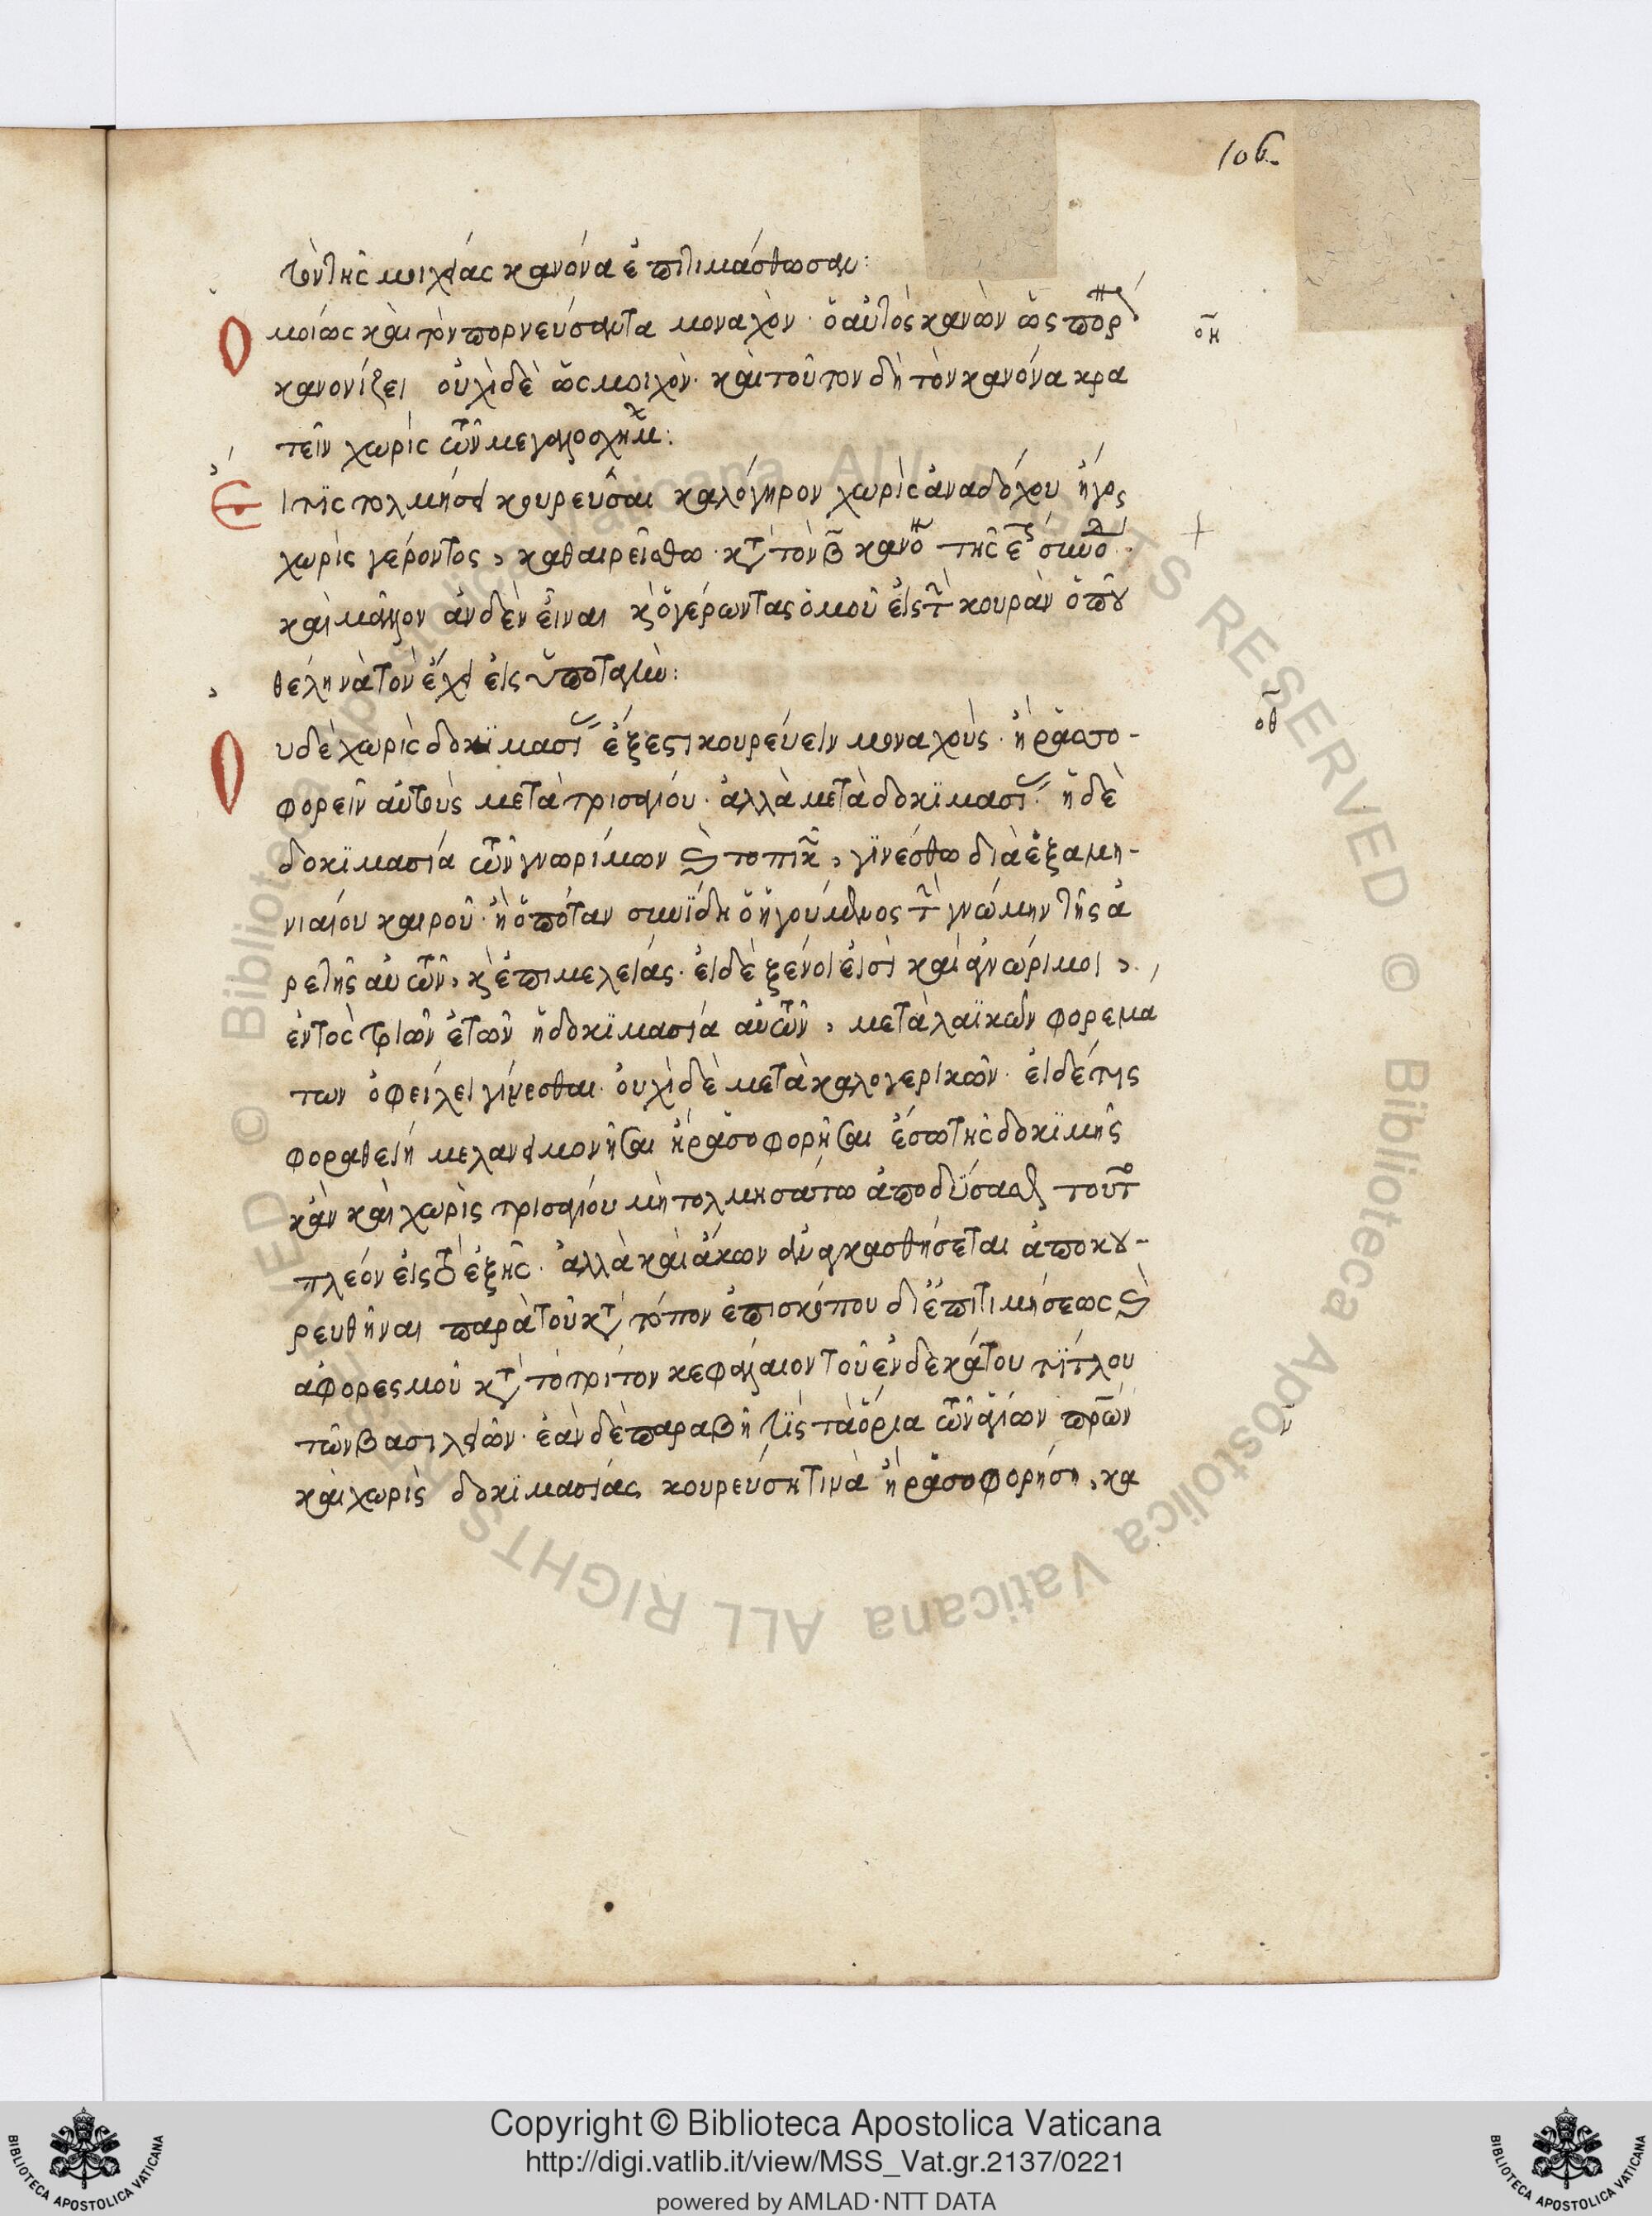 106.
τὸν τῆς μοιχείας κανόνα ἐπιτιμάσθωσαν:
Ὁμοίως καὶ τὸν πορνεύσαντα μοναχὸν· ὁ αὐτὸς κανὼν ὡς πόρ
οη
κανονίζει οὐχὶ δὲ ὡς μοιχὸν· καὶ τοῦτον δὴ τὸν κανόνα κρα
τεῖν χωρὶς τῶν μεγαλοσχήμ:
Εἴ τις τολμήσει κουρεῦσαι καλόγηρον χωρὶς ἀναδόχου ἤγος
χωρὶς γέροντος, καθαιρείσθω· κατὰ τὸν β̄ κανὸ τῆς ἐς συνό·
καὶ μᾶλλον ἂν δὲν εἶναι κ ὁ γέρωντας ὁμοῦ εἰς τ κουρὰν ὁποῦ
θέλη νὰ τὸν ἔχει εἰς ὑποταγὼ:
Οὐδὲ χωρὶς δοκϊμασί ἔξεστι κουρεύειν μοναχούς· ἢ ρασο-
οθ
φορεῖν αὐτοὺς μετὰ τρισαγίου· ἀλλὰ μετὰ δοκϊμασί· ἡ δὲ
δοκϊμασία τῶν γνωρίμων κ τοπικ, γϊνέσθω διὰ ἑξαμη-
νιαίου καιροῦ· ἢ ὁπόταν συνίδη ὁ ἡγούμενος τ γνώμην τῆς ἀ
ρετῆς αὐτῶν, κ ἐπιμελείας· εἰ δὲ ξένοι εἰσὶ καὶ ἀγνώριμοι,
ἐντὸς τριῶν ἐτῶν ἡ δοκϊμασία αὐτῶν, μετὰ λαϊκῶν φορεμά
των ὀφείλει γίνεσθαι· οὐχὶ δὲ μετὰ καλογερικῶν· εἰ δέ τις
φοραθείη μελανειμονῆσαι ἢ ρασοφορῆσαι ἔσω τῆς δοκϊμῆς
κἂν καὶ χωρὶς τρισαγίου μὴ τολμησάτω ἀποδΰσασθαι τοῦτ
πλέον εἰς τὸ ἑξῆς· ἀλλὰ καὶ ἄκων ἀναγκασθήσεται ἀποκου-
ρευθῆναι παρὰ τοῦ κατὰ τόπον ἐπισκόπου δι' ἐπιτιμήσεως κ
ἀφορεσμοῦ κατὰ τὸ τρίτον κεφάλαιον τοῦ ἑνδεκάτου τΐτλου
τῶν βασιλειῶν· ἐὰν δὲ παραβῆ τϊς τὰ ὅρια τῶν ἁγίων πρων
καὶ χωρὶς δοκϊμασίας κουρεύση τινὰ ἢ ρασοφορήση, κα
Copyright © Biblioteca Apostolica Vaticana
http://digi.vatlib.it/view/MSS_Vat.gr.2137/0221
powered by AMLAD·NTT DATA
BIBLIOTECA APOSTOLICA VATICANA
BIBLIOTECA APOSTOLICA VATICANA
© Biblioteca Apostolica Vaticana ALL RIGHTS RESERVED © Biblioteca Apostolica Vaticana ALL RIGHTS RESERVED